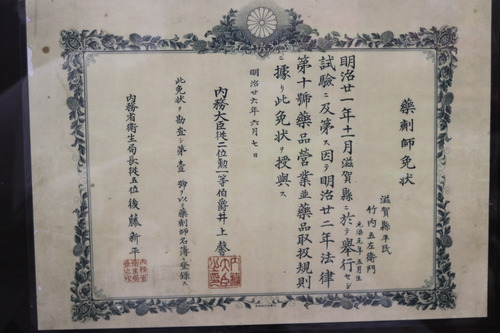 藥劑師免狀
滋賀縣平民
竹内五左衛門
元治元年五月生
明治廿一年十一月滋賀縣ニ於テ舉行セシ
試驗ニ及第ス因テ明治廿二年法律
第十號藥品營業並藥品取扱規則
ニ據リ此免狀ヲ授與ス
明治廿六年六月七日
内務大臣從二位勲一等伯爵井上馨
此免狀ヲ勘査シ第壹
號ヲ以テ藥劑師名簿ニ登録ス
内務省衛生局長從五位後藤新平